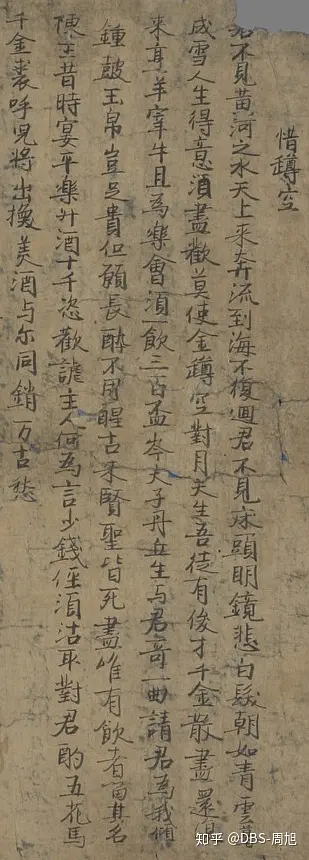 惜罇空
君不見黃河之水天上来奔流到海不復迴君不見床頭明鏡悲白髮朝如青雲
成雪人生得意須盡歡莫使金罇空對月天生吾徒有俊才千金散盡還
来烹羊宰牛且為樂會須一飲三百盃岑夫子丹丘生与君哥一曲請君為我傾
鍾鼓玉帛豈足貴但願長醉不用醒古来賢聖皆死盡唯有飲者留其名
陳王昔時宴平樂斗酒十千恣歡謔主人何為言少錢徑須沽取對君酌五花馬
千金裘呼兒將出換美酒与尔同銷万古愁
知乎 @DBS-周旭